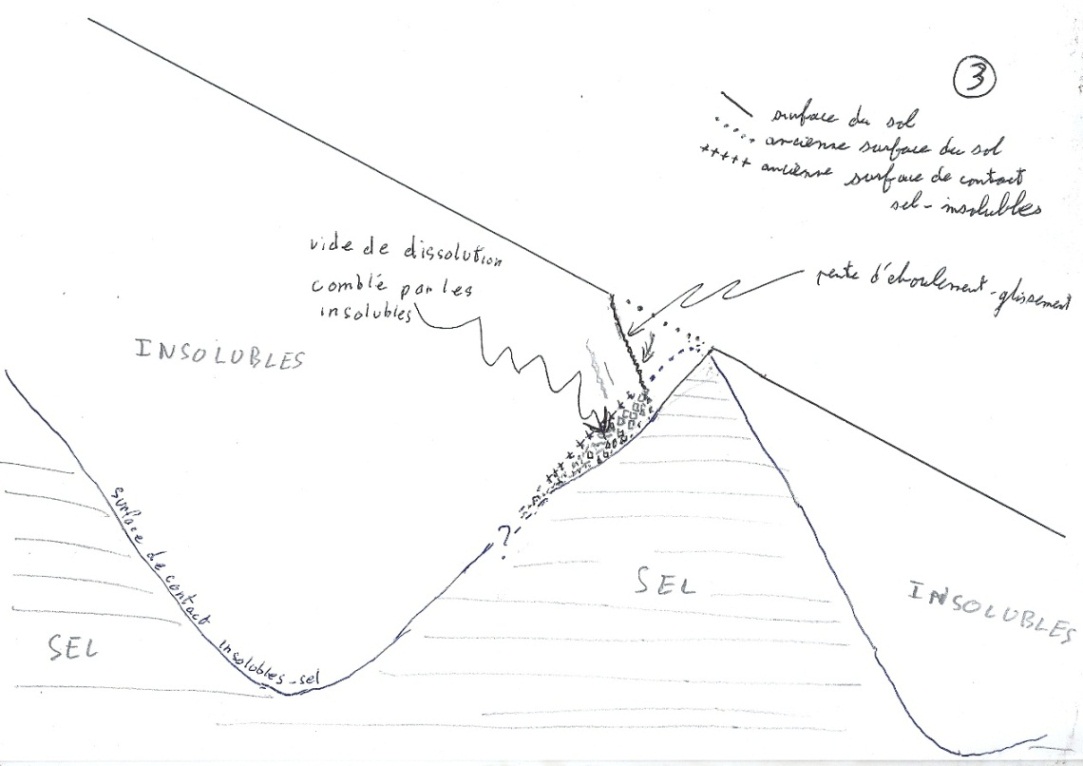 3
surface du sol
ancienne surface du sol
ancienne surface de contact
sel-insolubles
vide de dissolution
comblé par les
insolubles
pente d'éboulement-glissement
INSOLUBLES
surface de contact insolubles-sel
?
SEL
SEL
INSOLUBLES